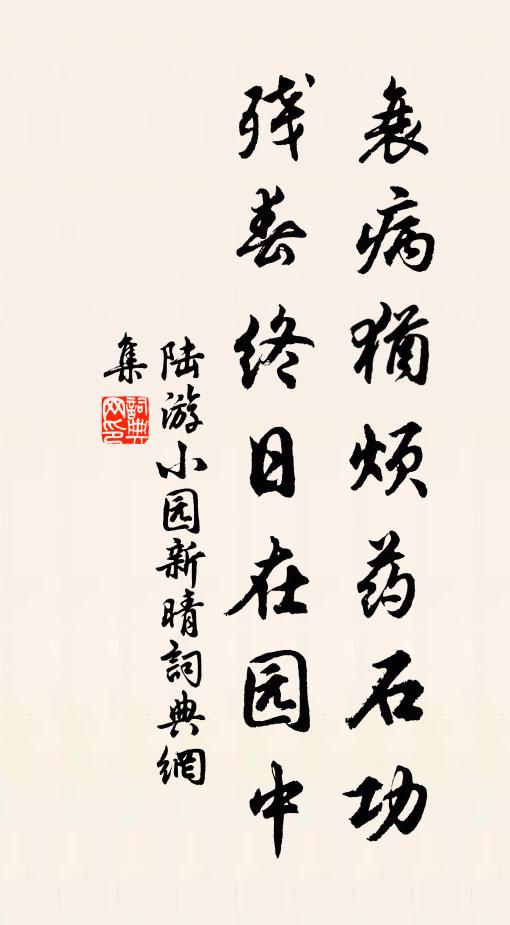 衰病猶烦药石功
残春终日在园中
陆游小园新晴詞典網
集
詞典
网印